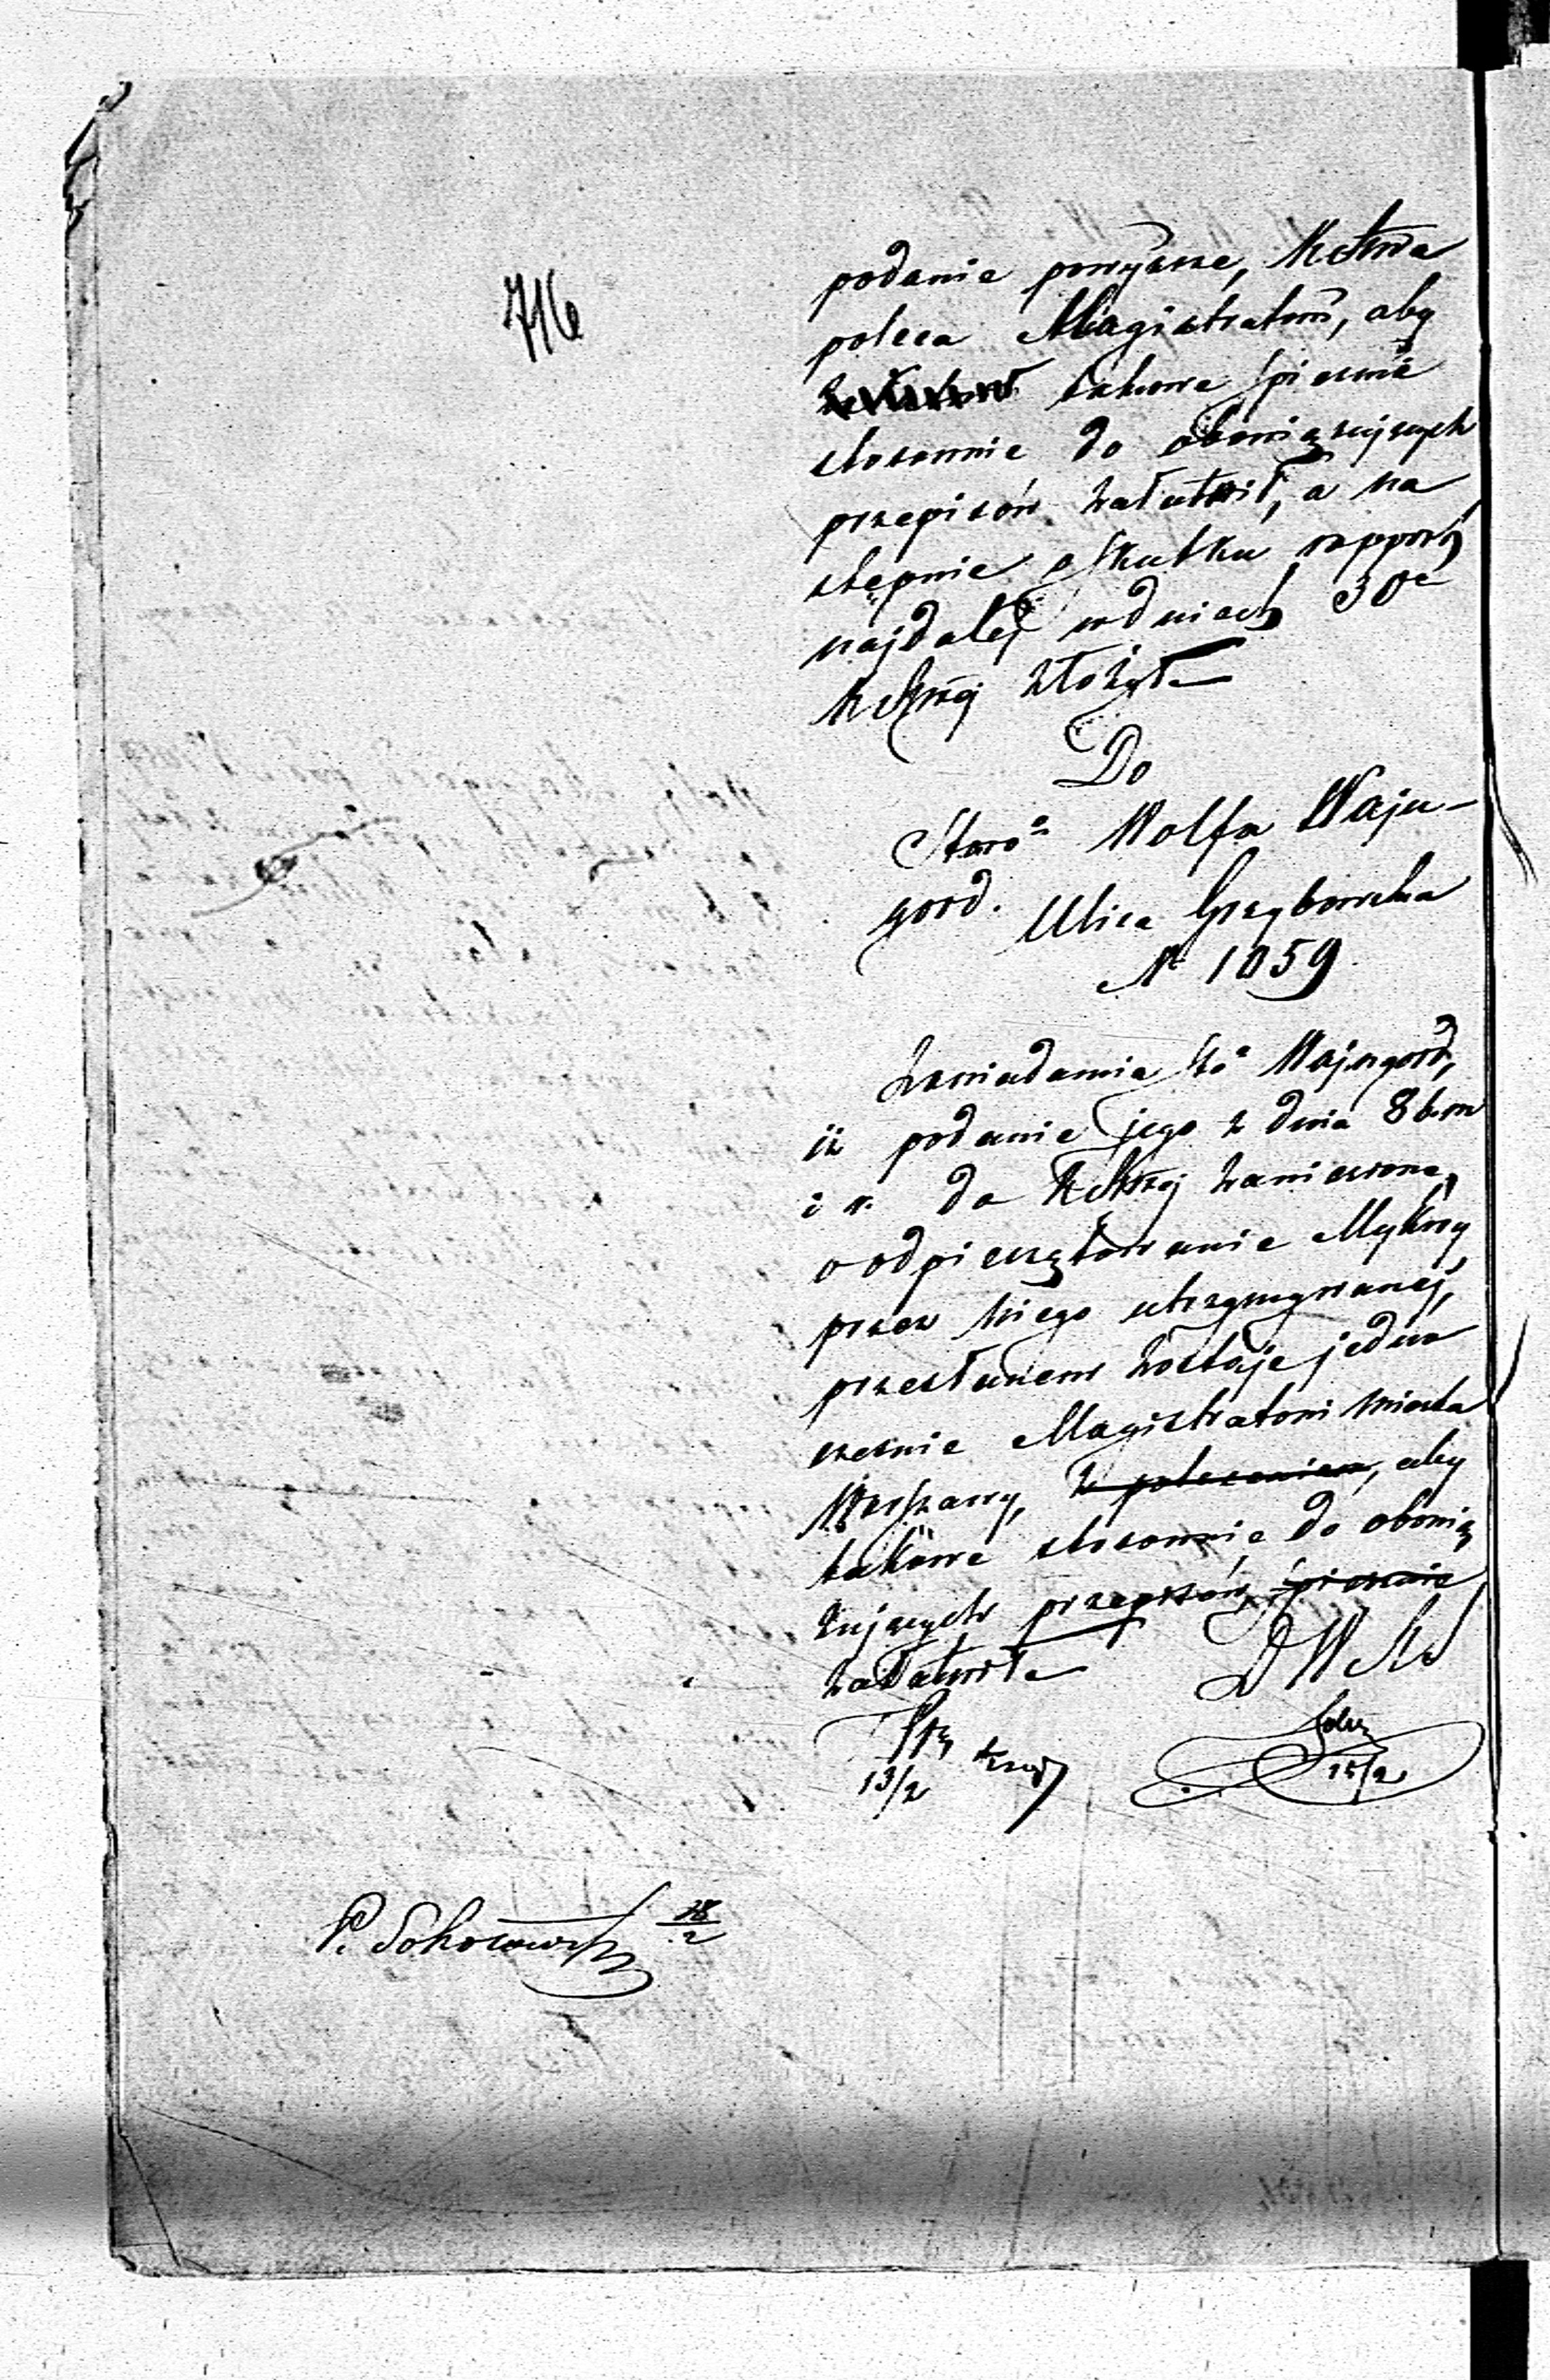 716
podanie powyższe, K R Sprw
poleca Magistratowi, aby
takowe śpiesznie
stosownie do obowiązujących
przepisów załatwił, a na
stępnie o skutku rapport
najdalej w dniach 30e
złożył
Do
Staro Wolfa Wajn-
gord. Ulica Grzybowska
N 1059
Zawiadamia Sto Wajngord,
iż podanie jego z dnia 8 b. m
i r. do zaniesione,
o odpieczętowanie Mykwy
przez niego utrzymywanej,
przesłanem zostaje jedno
cześnie Magistratowi Miasta
Warszawy, z poleceniem, aby
takowe stosownie do obowią
zujących przepisów śpiesznie
załatwił
D W
13/2
15/2
P. Sokołowski 18/2